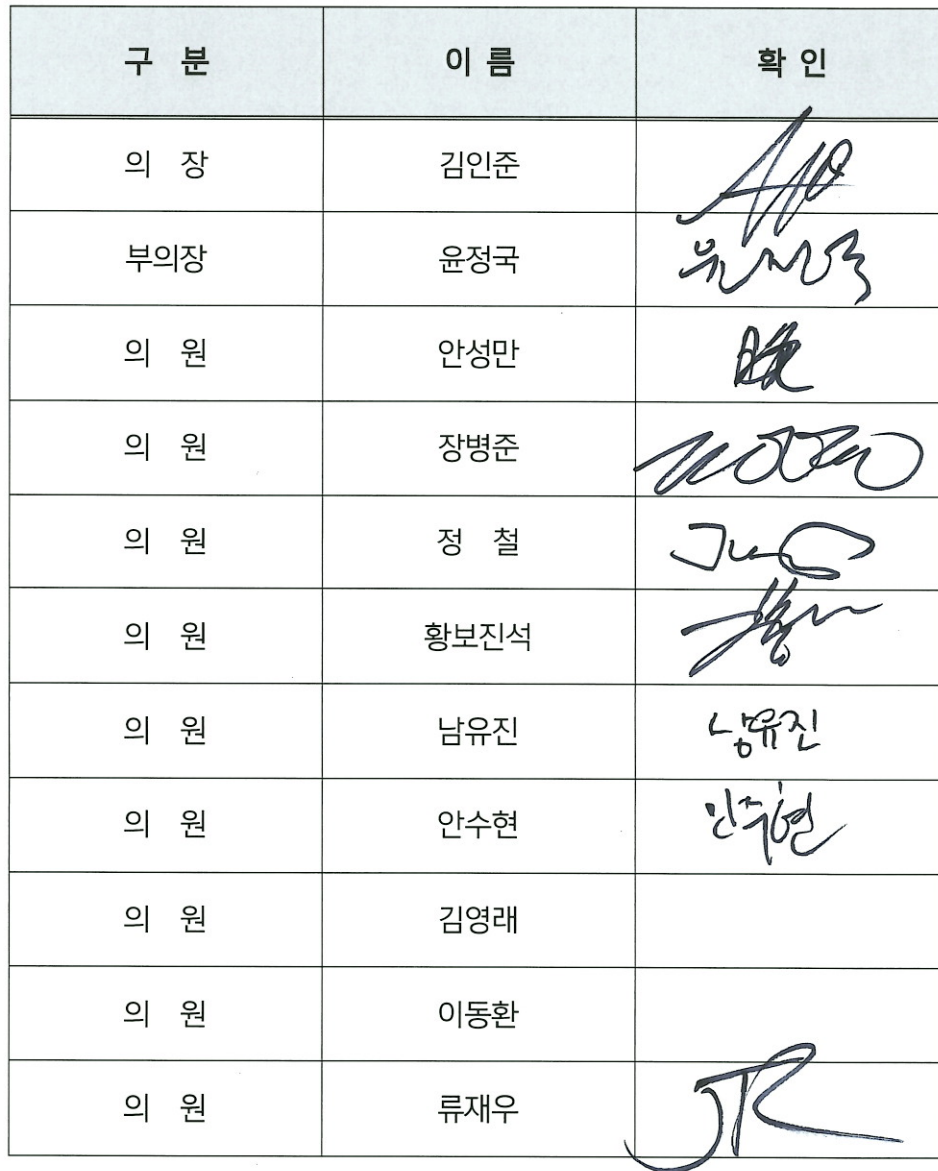 구 분 이 름 확 인
의 장 김인준
부의장 윤정국 윤정국
의 원 안성만
의 원 장병준
의 원 정 철
의 원 황보진석
의 원 남유진 남유진
의 원 안수현 안수현
의 원 김영래
의 원 이동환
의 원 류재우 JR